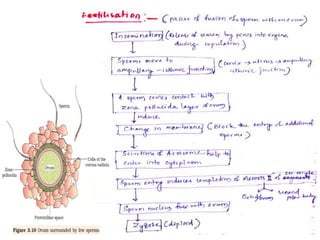 Fertilisation :— ( process of fusion of sperm with ovum )
Insemination ( Release of semen by penis into vagina
during copulation )
Sperms move to
ampullary - isthmic junction ( cervix → uterus → ampullary
isthmic junction )
A sperm comes contact with
zona pellucida layer of ovum
induce
Change in membrane ( Block the entry of additional
sperms )
Secretions of Acrosome help to
enter into cytoplasm
Sperm entry induces completion of Meiosis II of
Ootid/ovum
second
polar body
Sperm nucleus fuse with ovum
Zygote ( diploid )
Sperms
Ovum
Cells of the
corona radiata
Zona
pellucida
Perivitelline space
Figure 3.10 Ovum surrounded by few sperms